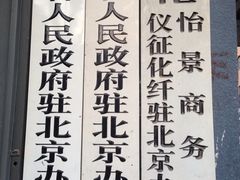 人民政府驻北京办
人民政府驻北京办
仪征化纤驻北京办
怡景商务